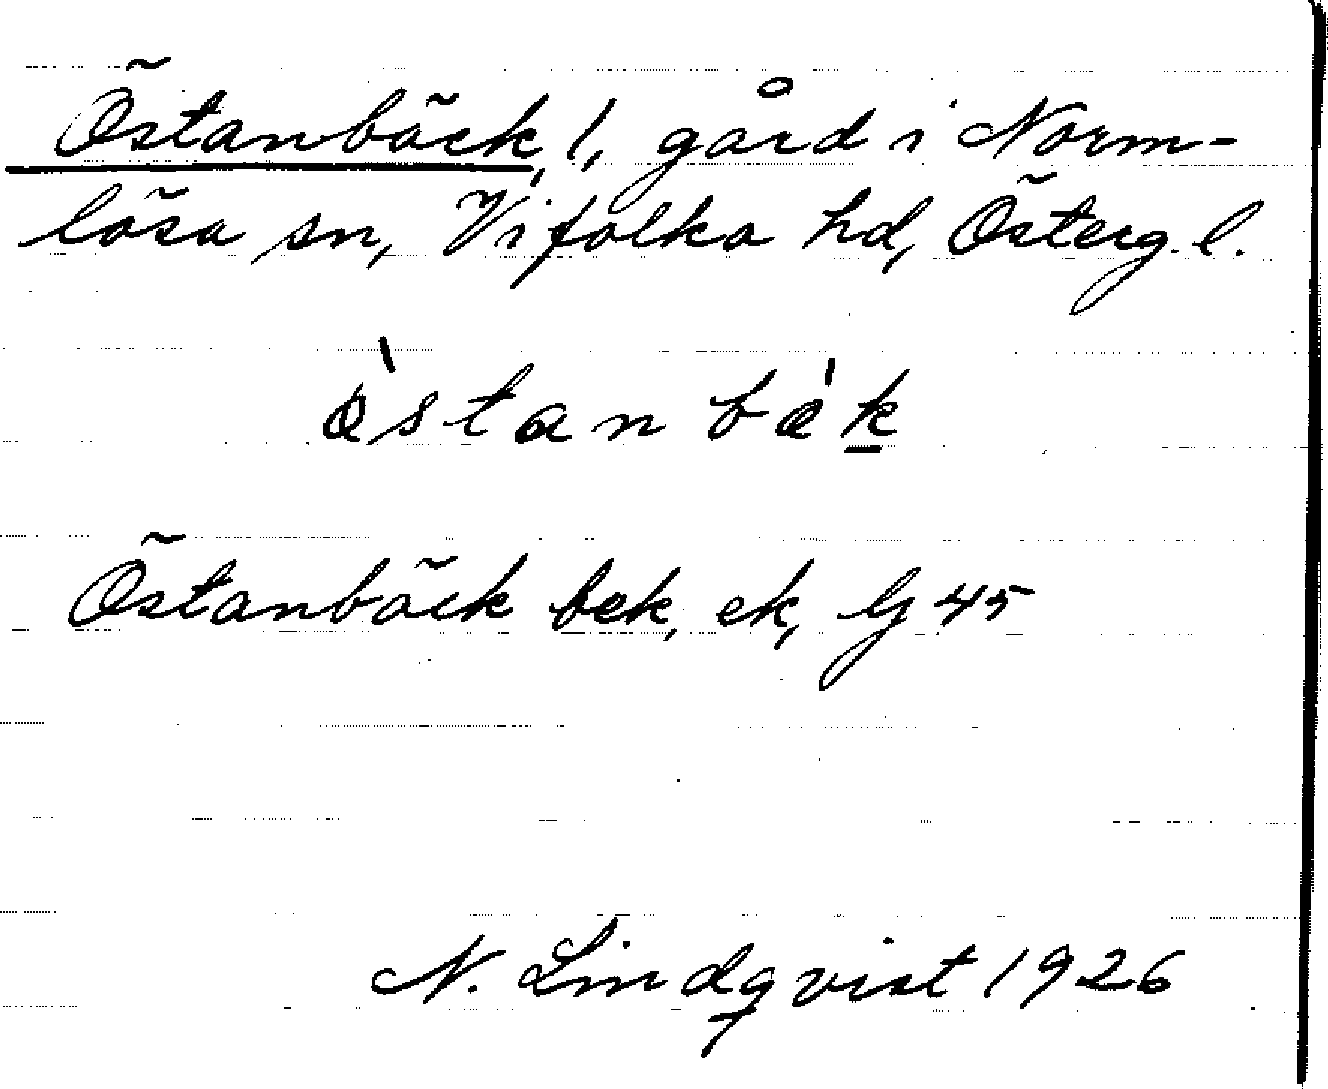 Östanbäck, 1, gård i Norm-
lösa sn, Vifolka hd, Österg. l.
östanbäk
Östanbäck bek, ek, G 45
N. Lindqvist 1926